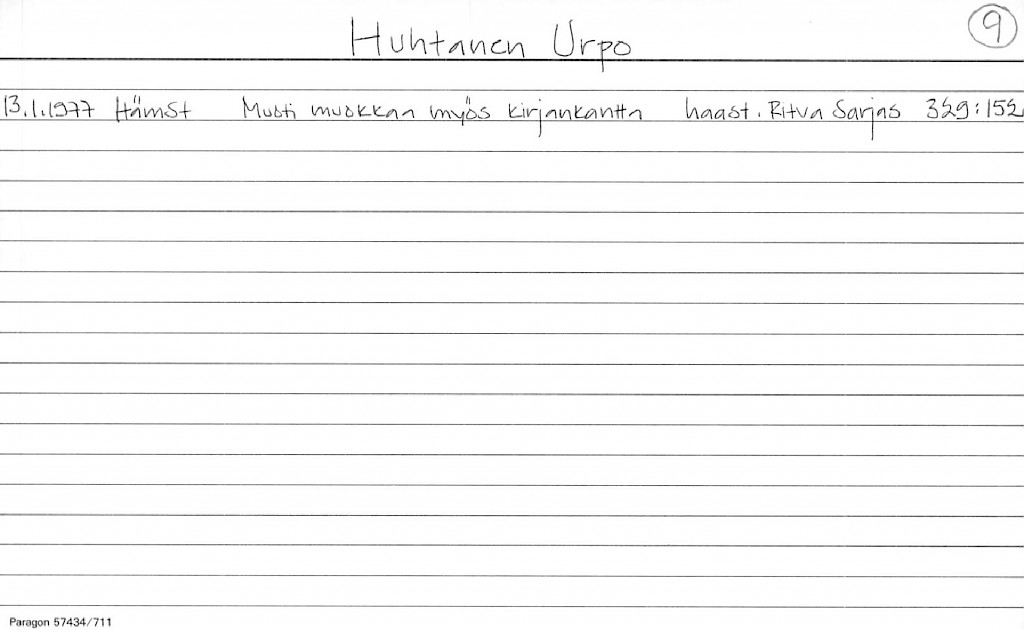 Huhtanen Urpo
9
13.1.1977 HämSt Musti muokkaa myös kirjankantta haast. Ritva Sarjas 329:152
Paragon 57434/711